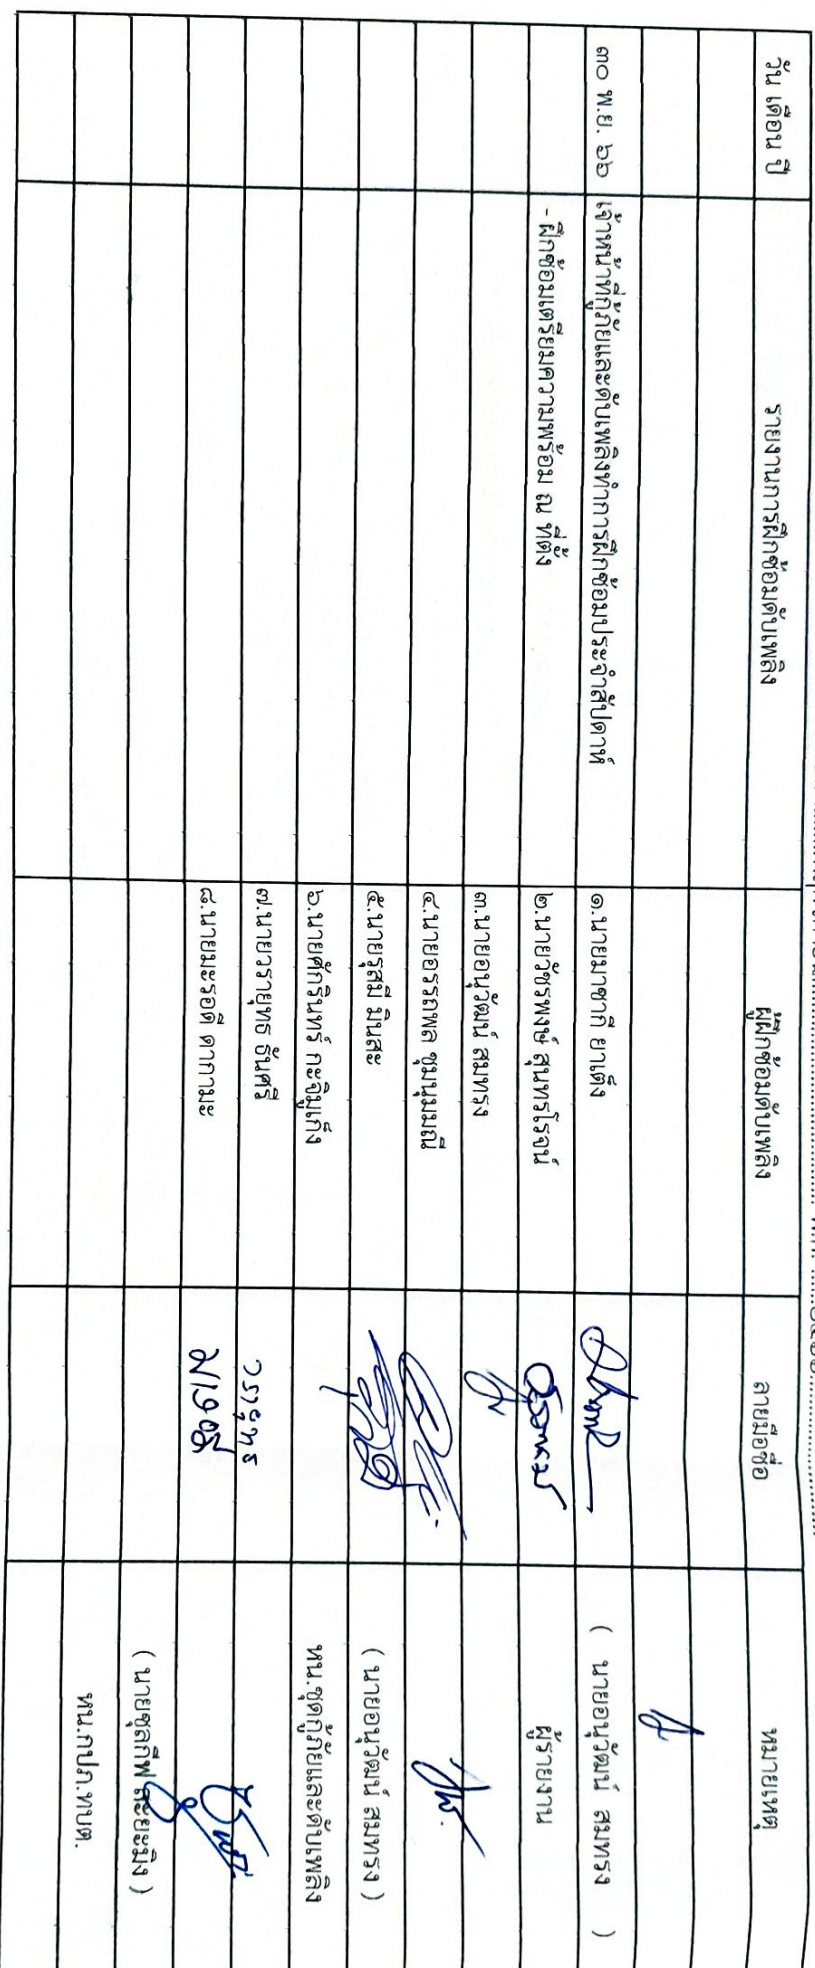 วัน เดือน ปี
รายงานการฝึกซ้อมดับเพลิง
ผู้ฝึกซ้อมดับเพลิง
ลายมือชื่อ
หมายเหตุ
๓๐ พ.ย. ๖๖
เจ้าหน้าที่กู้ภัยและดับเพลิงทำการฝึกซ้อมประจำสัปดาห์
๑.นายมาซากี ยาเด็ง
( นายอนุวัฒน์ สมทรง )
- ฝึกซ้อมเตรียมความพร้อม ณ ที่ตั้ง
๒.นายวัชรพงษ์ สุนทรโรจน์
ผู้รายงาน
๓.นายอนุวัฒน์ สมทรง
๔.นายอรรถพล ชุมนุมมณี
๕.นายรุสมี มินสะ
( นายอนุวัฒน์ สมทรง )
๖.นายศักรินทร์ กะจิมูเก็ง
หน.ชุดกู้ภัยและดับเพลิง
๗.นายวรายุทธ ธันศรี
วรายุทธ
๘.นายมะรอดี ดากามะ
( นายซุลกีฟ
หน.กปภ.ทบต.